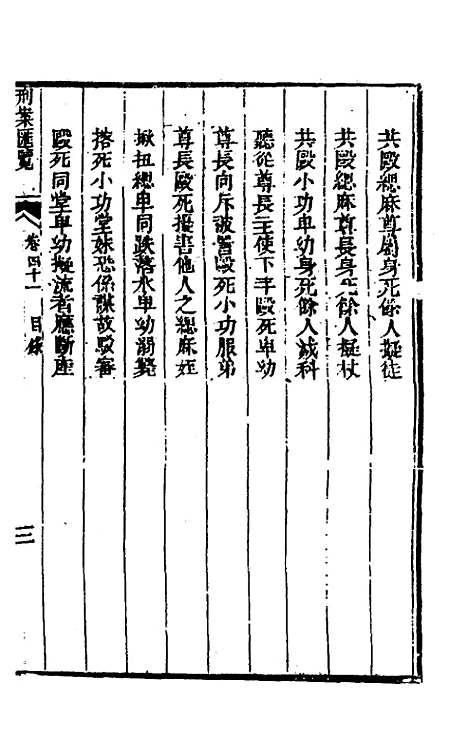 共毆緦麻尊屬身死餘人擬徒
共毆緦麻尊長身死餘人擬杖
共毆小功卑幼身死餘人減科
聽從尊長主使下手毆死卑幼
尊長向斥被詈毆死小功服弟
尊長毆死搶害他人之緦麻姪
揪扭緦卑同跌落水卑幼溺斃
搭死小功堂妹恐係謀故駁審
毆死同堂卑幼擬流者應斷產
刑案匯覽 卷四十一 目錄 三